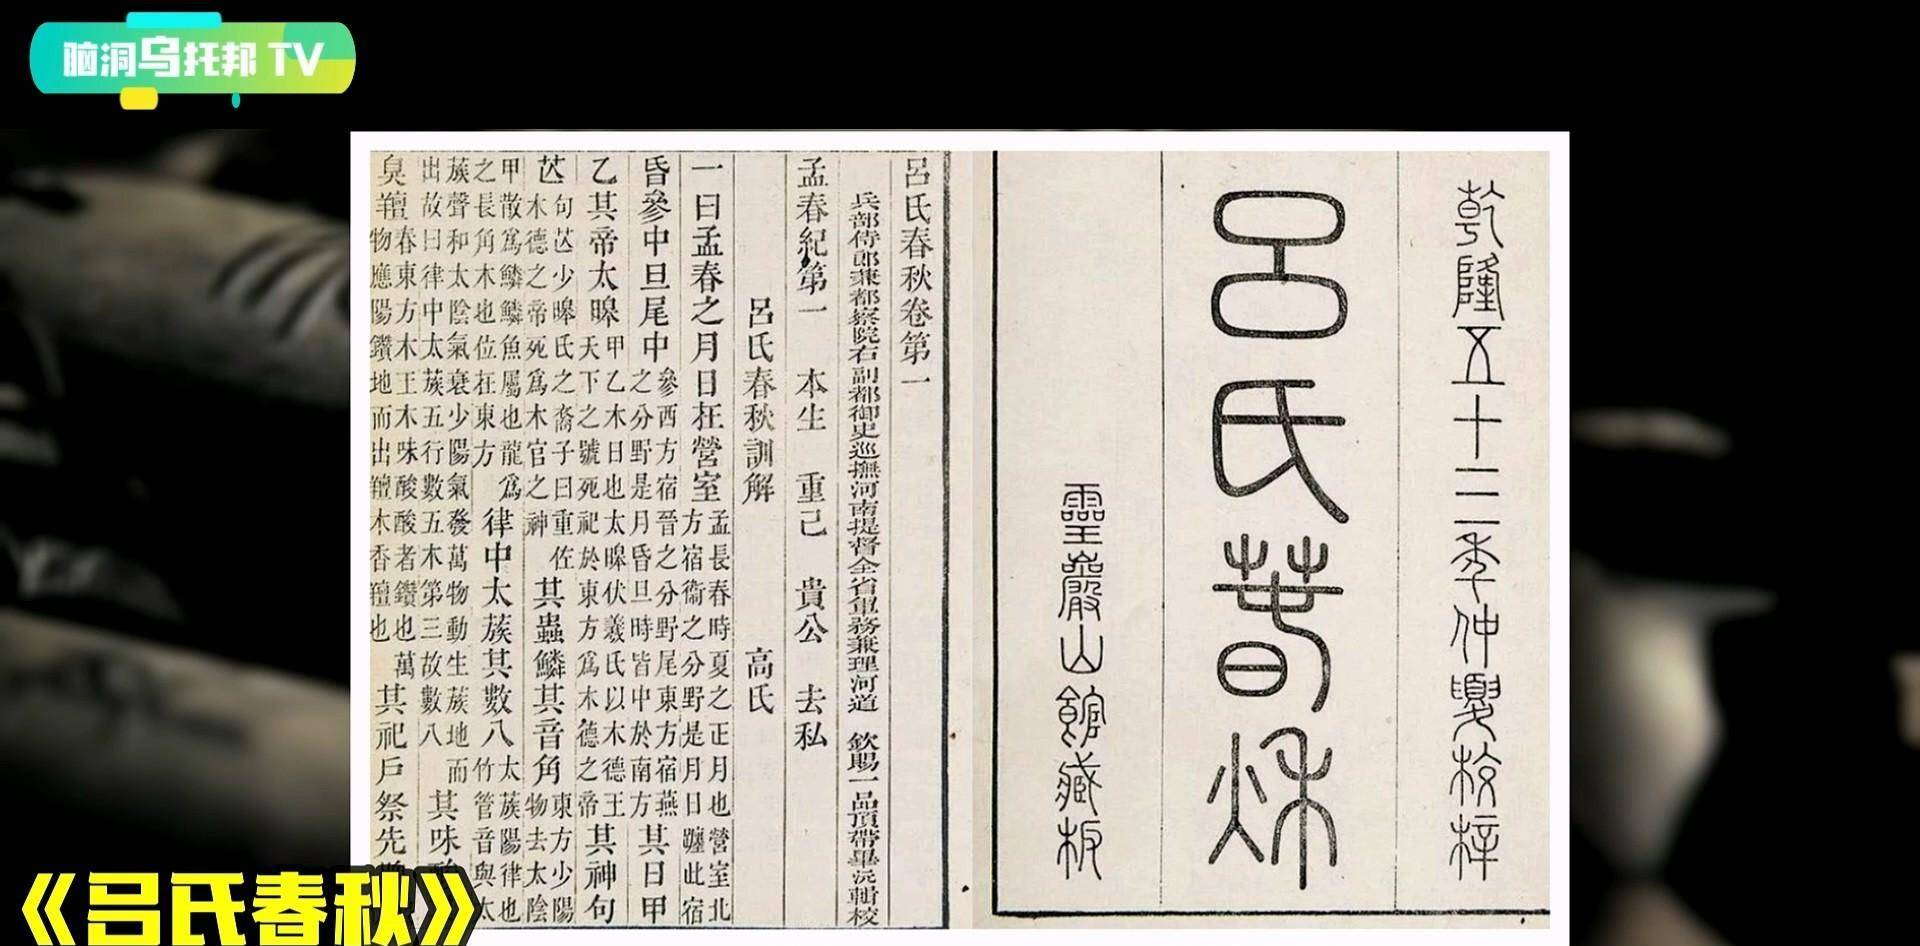 脑洞乌托邦 TV
乾隆五十三年仲夏校梓
呂氏春秋
靈巖山館藏板
呂氏春秋卷第一
兵部侍郎兼都察院右副都御史巡撫河南提督全省軍務兼理河道 欽賜一品頂帶畢沅輯校
孟春紀第一 本生 重己 貴公 去私
呂氏春秋訓解 高氏
一曰孟春之月日在營室孟長春時夏之正月也營室北方宿衞之分野是月日躔此宿
昏參中旦尾中參西方宿晉之分野尾東方宿燕之分野是月昏旦時皆中於南方其日甲
乙其帝太皞甲乙木日也太皞伏羲氏以木德王天下之號死祀於東方爲木德之帝其神句
芒句芒少皞氏之裔子曰重佐木德之帝死爲木官之神其蟲鱗其音角東方少陽物去太陰
甲散爲鱗鱗魚屬也龍爲之長角木也位在東方律中太蔟其數八太蔟陽律也竹管音與太
蔟聲和太陰氣衰少陽氣發萬物動生蔟地而出故曰律中太蔟五行數五木第三故數八其味
臭羶春東方木王木味酸酸者鑽也萬物應陽鑽地而出羶木香羶也其祀戶祭先
《吕氏春秋》